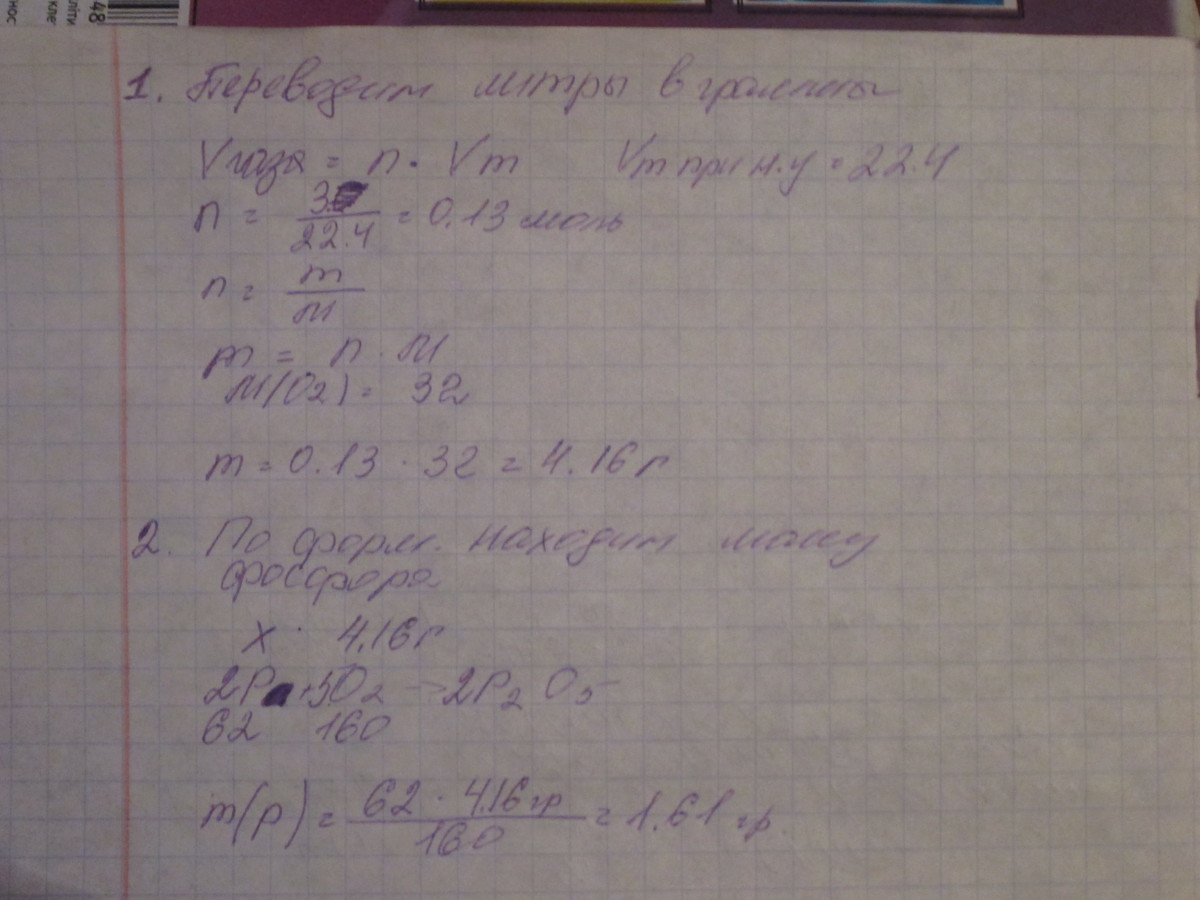 48
літи
клe
нос
1. Переводим литры в граммы
Vгаза = n · Vm Vm при н.у = 22.4
n = 3 / 22.4 = 0.13 моль
n = m / M
m = n · M
M(O2) = 32
m = 0.13 · 32 = 4.16 г
2. По форм. находим массу
фосфора
x · 4.16 г
2P + 5O2 → 2P2O5
62 160
m(p) = 62 · 4.16 гр / 160 = 1.61 гр.